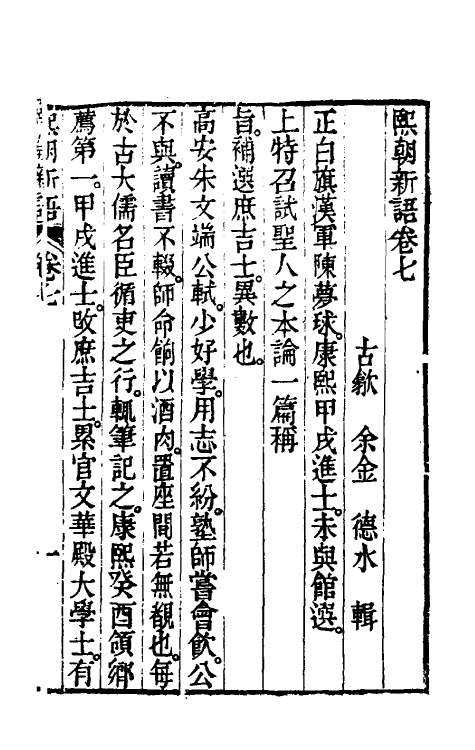 熙朝新語卷七
古歙　余金　德水　輯
正白旗漢軍陳夢球。康熙甲戌進士。未與館選。
上特召試聖人之本論一篇稱
旨。補選庶吉士。異數也。
高安朱文端公軾。少好學。用志不紛。塾師嘗會飲。公
不與。讀書不輟。師命餉以酒肉。置座間若無覩也。每
於古大儒名臣循吏之行。輒筆記之。康熙癸酉領鄉
薦第一。甲戌進士。改庶吉士。累官文華殿大學士。有
熙朝新語　卷七　一